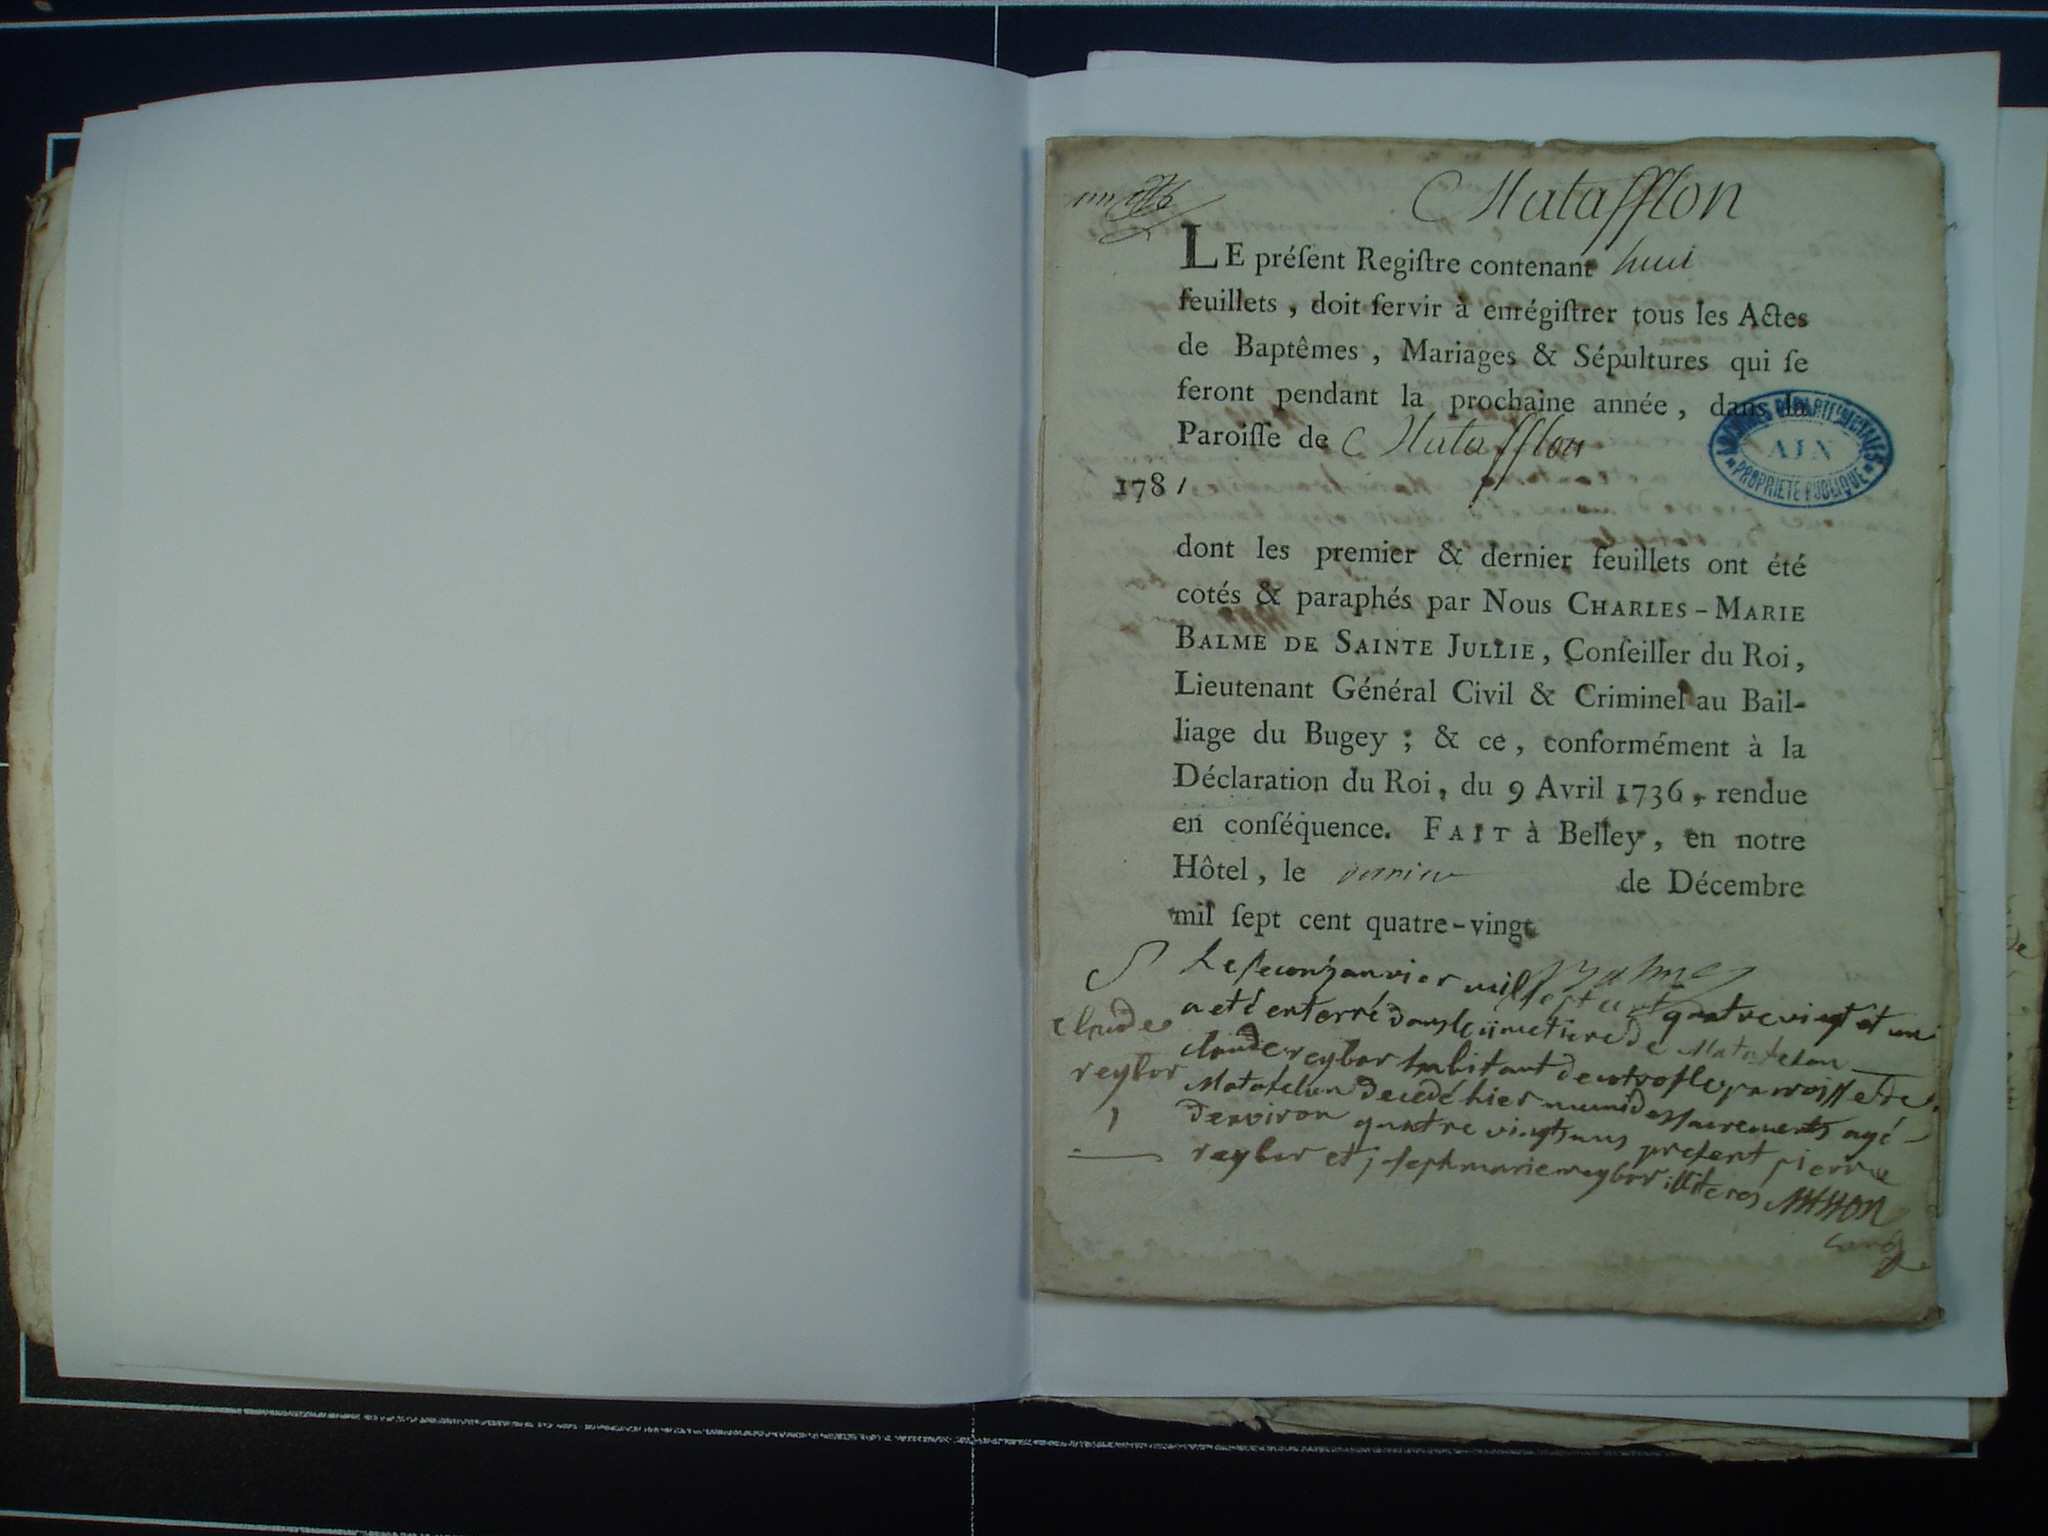 Matafflon
LE préſent Regiſtre contenant huit
feuillets, doit ſervir à enrégiſtrer tous les Actes
de Baptêmes, Mariages & Sépultures qui ſe
feront pendant la prochaine année, dans la
Paroiſſe de Matafflon
1781
ARCHIVES DÉPARTEMENTALES
AIN
PROPRIÉTÉ PUBLIQUE
dont les premier & dernier feuillets ont été
cotés & paraphés par Nous CHARLES-MARIE
BALME DE SAINTE JULLIE, Conſeiller du Roi,
Lieutenant Général Civil & Criminel au Bail-
liage du Bugey; & ce, conformément à la
Déclaration du Roi, du 9 Avril 1736, rendue
en conſéquence. FAIT à Belley, en notre
Hôtel, le dernier de Décembre
mil ſept cent quatre-vingt
Balme
S
claude
reybor
1
Le second janvier mil sept cent quatre vingt et un
a eté enterré dans le cimetiere de Matafelon
claude reybor habitant de cette paroisse de
Matafelon decedé hier muni des sacrements agé
d'environ quatre vingts ans present pierre
reybor et joseph marie reybor illiteres
curé